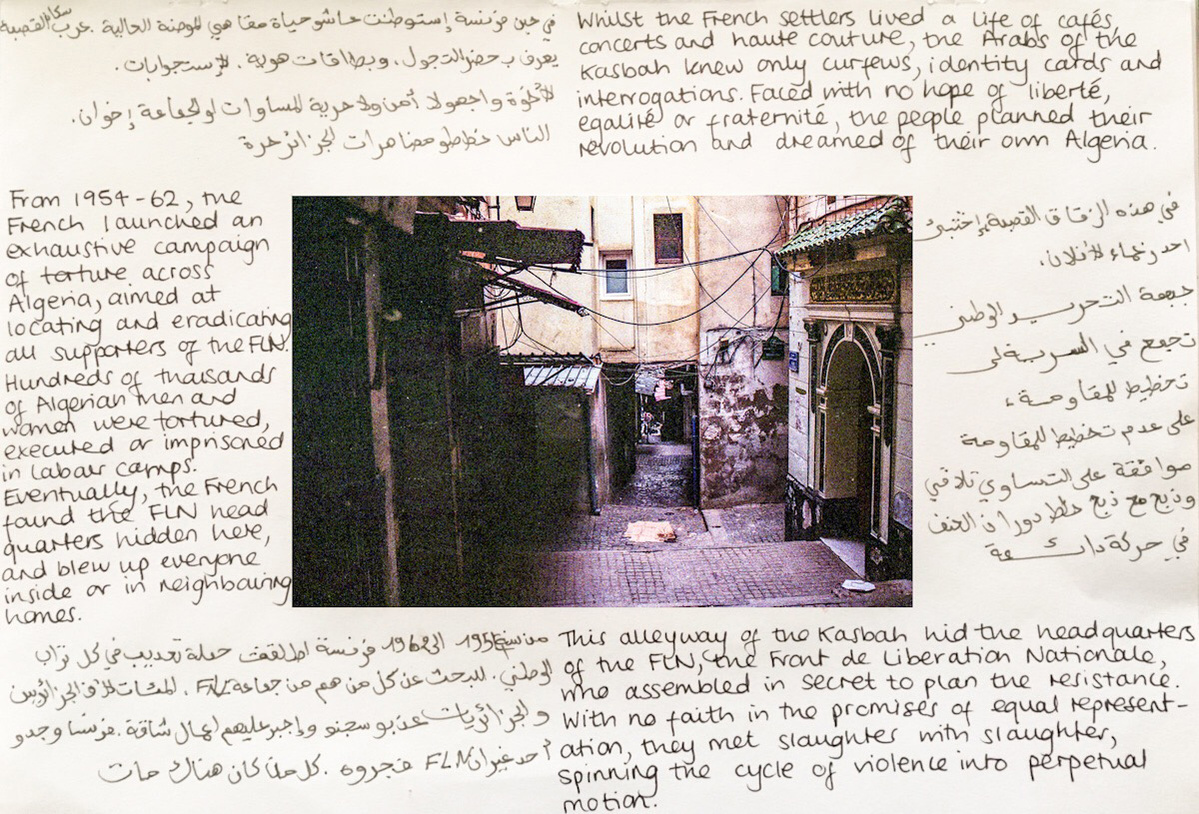 في حين فرنسة إستوطنت عاشو حياة مقاهي الموضة الحالية . عرب القصبة
سكان
يعرف ب حضر التجول ، وبطاقات هوية . لإستجوابات .
ولا حرية للمساوات
الناس خططو
Whilst the French settlers lived a life of cafés,
concerts and haute couture, the Arabs of the
Kasbah knew only curfews, identity cards and
interrogations. Faced with no hope of liberté,
egalité or fraternité, the people planned their
revolution and dreamed of their own Algeria.
From 1954-62, the
French launched an
exhaustive campaign
of torture across
Algeria, aimed at
locating and eradicating
all supporters of the FLN.
Hundreds of thousands
of Algerian men and
women were tortured,
executed or imprisoned
in labour camps.
Eventually, the French
found the FLN head
quarters hidden here,
and blew up everyone
inside or in neighbouring
homes.
في هذه الزقاق القصبة إختبئ
احد
جبهة التحرير الوطني
تجمع في السرية لى
تخطيط للمقاومة ،
على عدم تخطيط للمقاومة
موافقة على التساوي تلاقي
وذبح مع ذبح خلط دوران العنف
في حركة دائمة
من سنة 1954 الى 1962 فرنسة اطلقت حملة تعذيب في كل تراب
الوطني . للبحث عن كل من هم من جماعة FLN .
و الجزائريات عذبو سجنو وإجبر عليهم اعمال شاقة . فرنسا وجدو
FLN فجروه . كل من كان هناك مات
This alleyway of the Kasbah hid the headquarters
of the FLN, the Front de Liberation Nationale,
who assembled in secret to plan the resistance.
With no faith in the promises of equal represent-
ation, they met slaughter with slaughter,
spinning the cycle of violence into perpetual
motion.